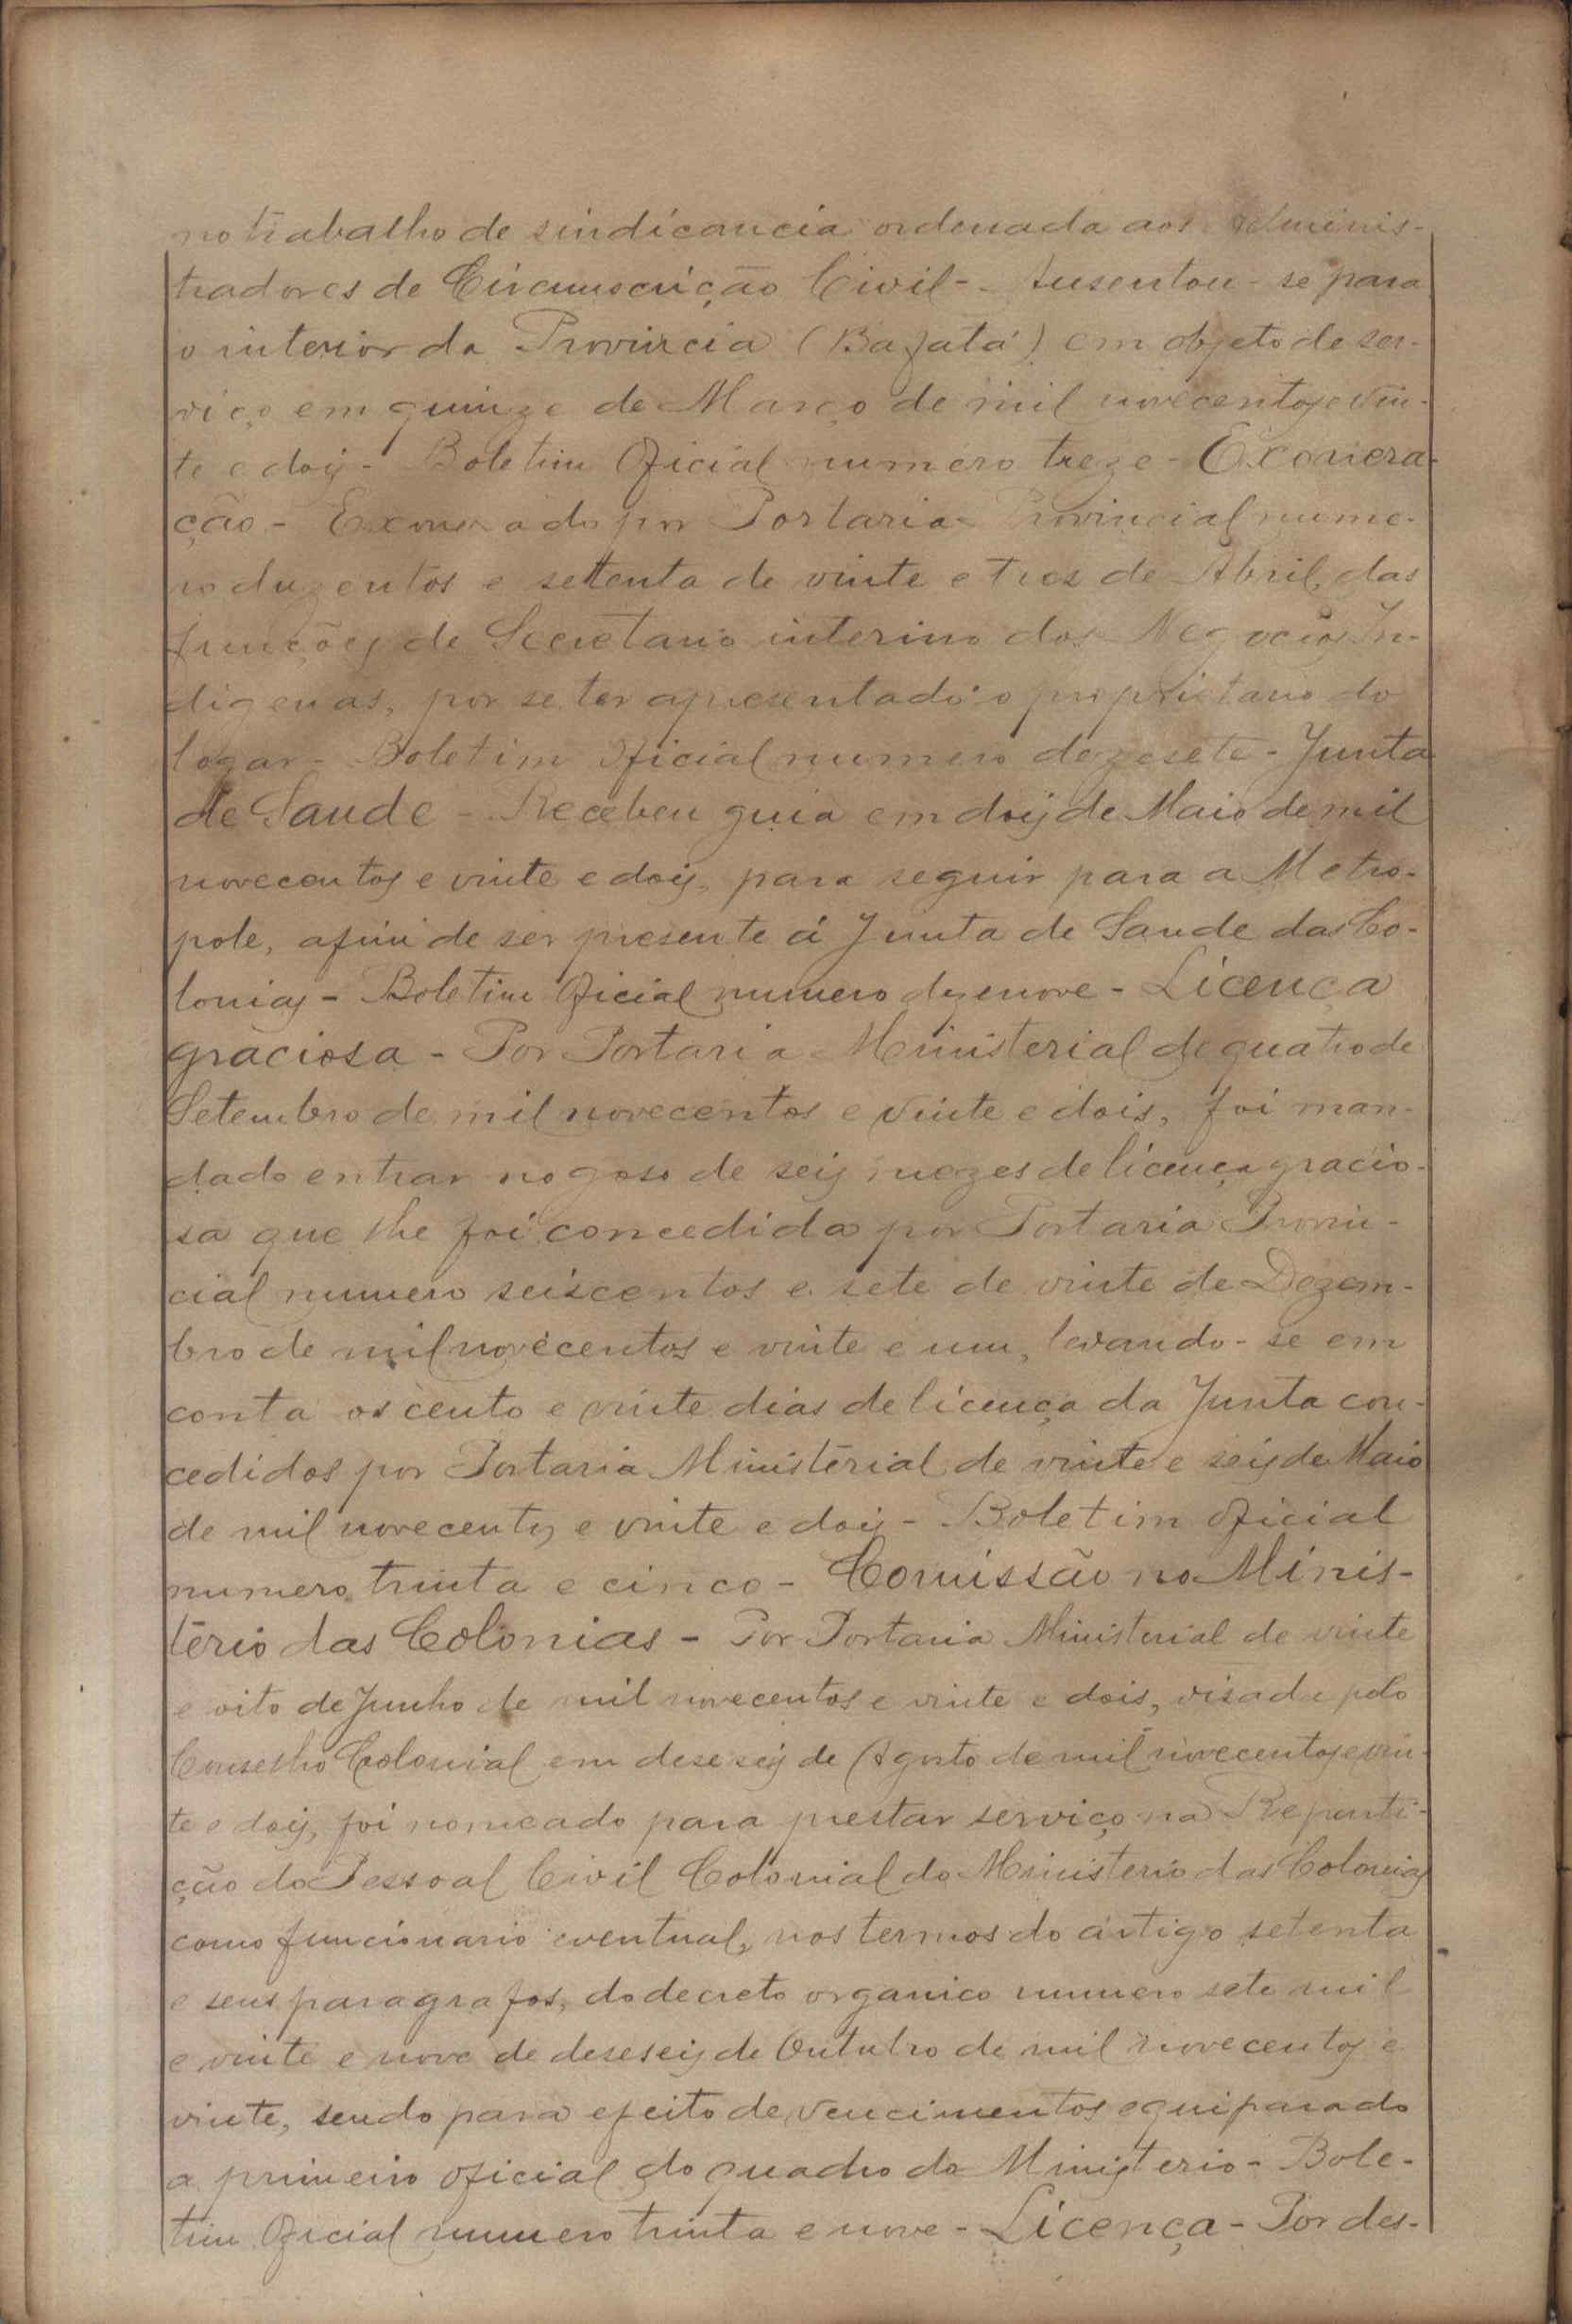 no trabalho de sindicancia ordenada aos adminis-
tradores de Circunscrição Civil - Ausentou-se para
o interior da Provincia (Bafatá) em objeto de ser-
viço em quinze de Março de mil novecentos e vin-
te e dois - Boletim Oficial numero treze - Exonera-
ção - Exonerado por Portaria Provincial nume-
ro duzentos e setenta de vinte e tres de Abril, das
funções de Secretario interino dos Negocios In-
digenas, por se ter apresentado o proprietario do
logar - Boletim Oficial numero dezesete - Junta
de Saude - Recebeu guia em dois de Maio de mil
novecentos e vinte e dois, para seguir para a Metro-
pole, afim de ser presente á Junta de Saude das Co-
lonias - Boletim Oficial numero dezenove - Licença
graciosa - Por Portaria Ministerial de quatro de
Setembro de mil novecentos e vinte e dois, foi man-
dado entrar no goso de seis mezes de licença gracio-
sa que lhe foi concedida por Portaria Provin-
cial numero seiscentos e sete de vinte de Dezem-
bro de mil novecentos e vinte e um, levando-se em
conta os cento e vinte dias de licença da Junta con-
cedidos por Portaria Ministérial de vinte e seis de Maio
de mil novecentos e vinte e dois - Boletim Oficial
numero trinta e cinco - Comissão no Minis-
tério das Colonias - Por Portaria Ministerial de vinte
e oito de Junho de mil novecentos e vinte e dois, visada pelo
Conselho Colonial em deseseis de Agosto de mil novecentos e vin-
te e dois, foi nomeado para prestar serviço na Reparti-
ção do Pessoal Civil Colonial do Ministerio das Colonias
como funcionario eventual, nos termos do artigo setenta
e seus paragrafos, do decreto organico numero sete mil
e vinte e nove de deseseis de Outubro de mil novecentos e
vinte, sendo para efeito de vencimentos equiparado
a primeiro oficial do quadro do Ministerio - Bole-
tim Oficial numero trinta e nove - Licença - Por des-